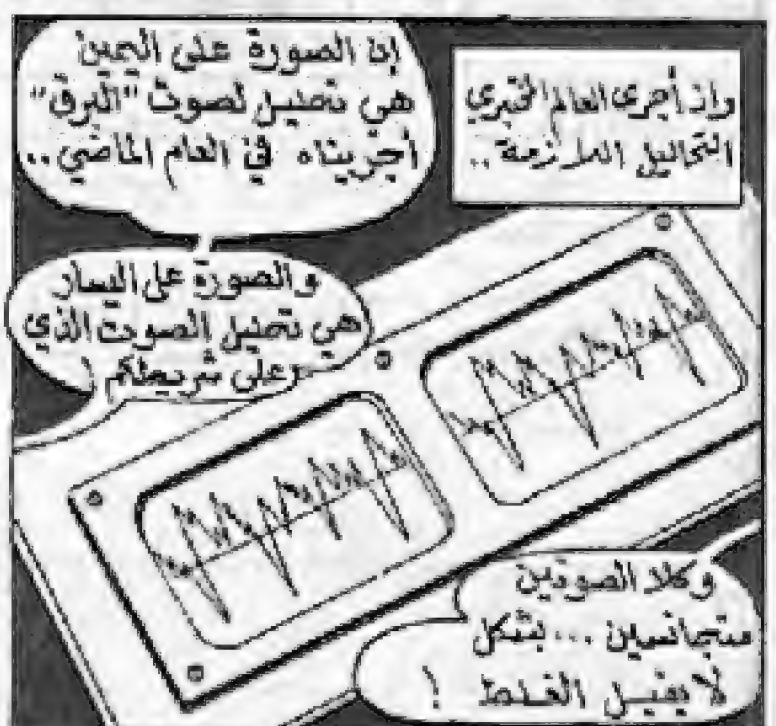 وإذ أجرى العالم المخبري
التحاليل الملازمة ..
إن الصورة على اليمين
هي تحليل لصوت "البرق"
أجريناه في العام الماضي ..
والصورة على اليسار
هي تحليل الصوت الذي
على شريطكم !
وكلا الصوتين
متجانسين ... بشكل
لا يقبل الغلط !